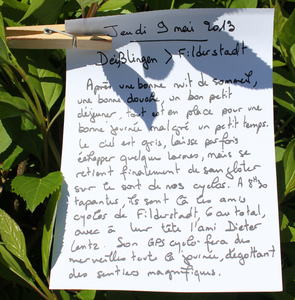 Jeudi 9 mai 2013
Deißlingen > Filderstadt
Après une bonne nuit de sommeil,
une bonne douche, un bon petit
déjeuner, tout est en place pour une
bonne journée malgré un petit temps.
Le ciel est gris, laisse parfois
échapper quelques larmes, mais se
retient finalement de sangloter
sur le sort de nos cyclos. A 8h30
tapantes, ils sont là les amis
cyclos de Filderstadt, 6 au total,
avec à leur tête l'ami Dieter
Lentz. Son GPS cyclo fera des
merveilles toute la journée, dégottant
des sentiers magnifiques.